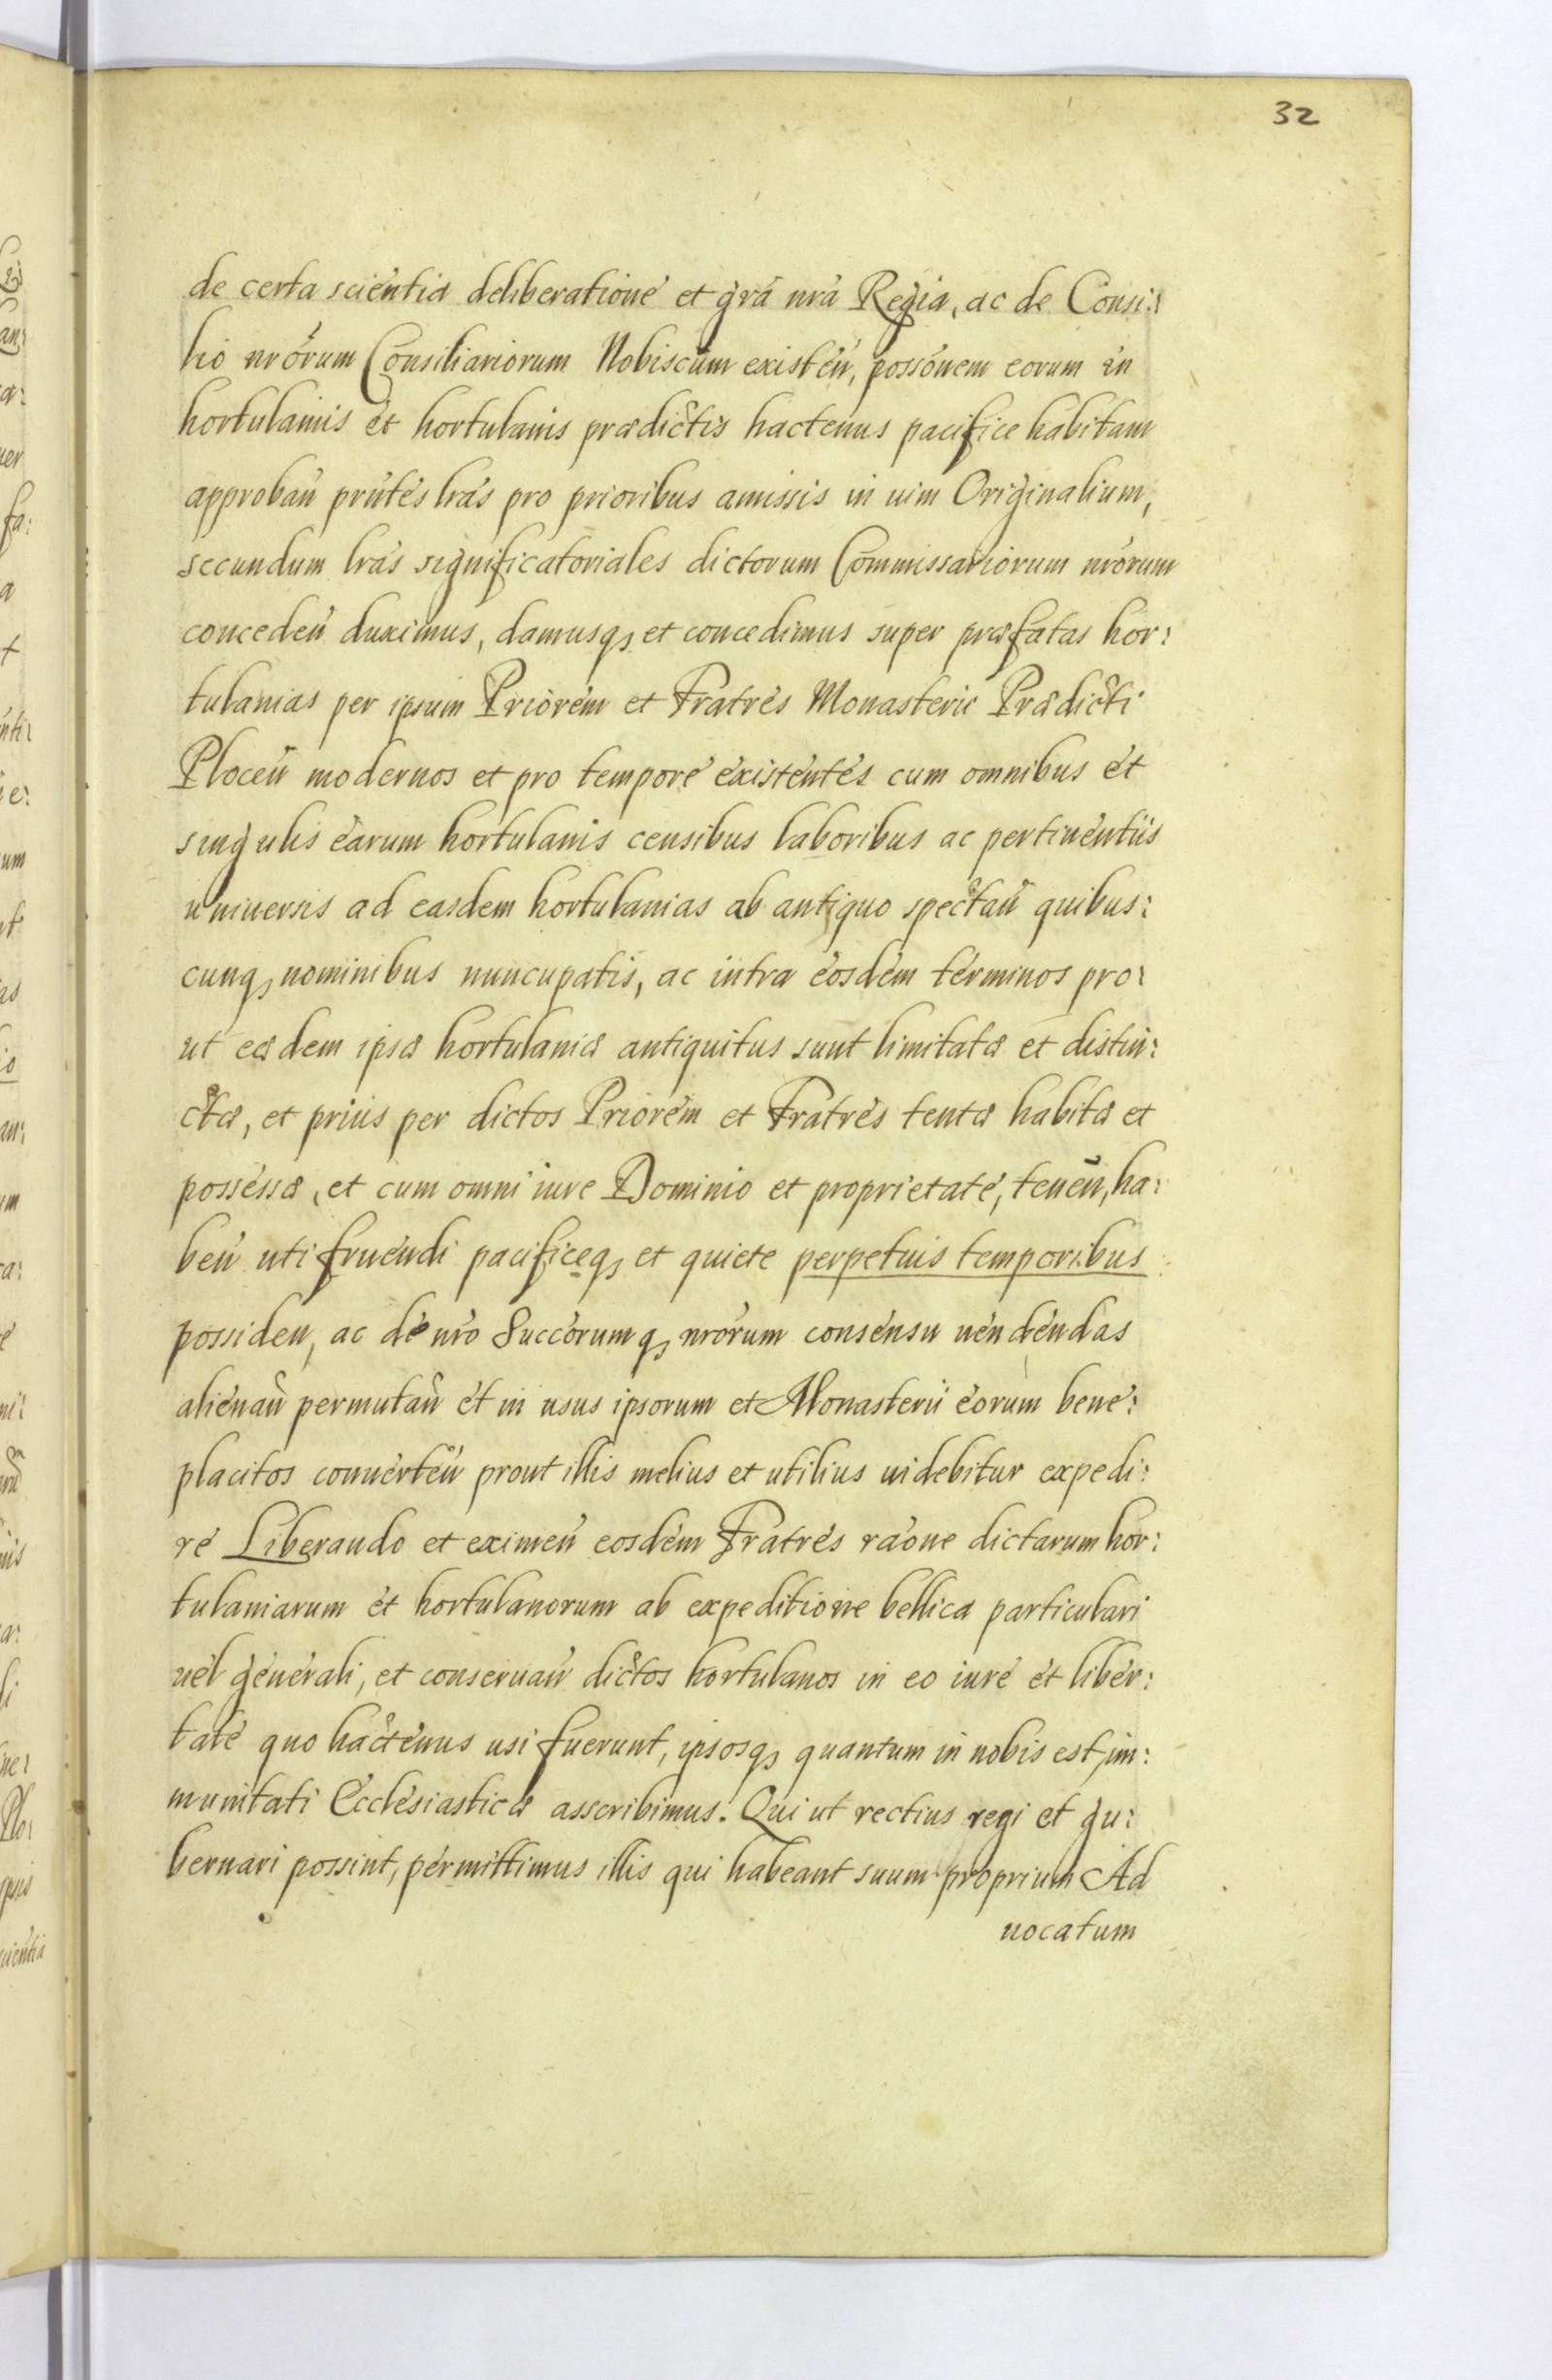 32
de certa scientia deliberatione et grã nrã Regia, ac de Consi:
lio nrõrum Consiliariorum Nobiscum existeñ, possõnem eorum in
hortulaniis et hortulanis prædictis hactenus pacifice habitam
approbañ prñtes lrãs pro prioribus amissis in uim Originalium,
secundum lrãs significatoriales dictorum Commissariorum nrõrum
concedeñ duximus, damusq₃ et concedimus super præfatas hor:
tulanias per ipsum Priorem et Fratres Monasterii Prædicti
Ploceñ modernos et pro tempore existentes cum omnibus et
singulis earum hortulanis censibus laboribus ac pertinentiis
uniuersis ad easdem hortulanias ab antiquo spectañ quibus:
cunq₃ nominibus nuncupatis, ac intra eosdem terminos pro:
ut eædem ipsæ hortulaniæ antiquitus sunt limitatæ et distin:
ctæ, et prius per dictos Priorem et Fratres tentæ habitæ et
possessæ, et cum omni iure Dominio et proprietate, teneñ, ha:
beñ uti fruendi pacificeq₃ et quiete perpetuis temporibus
possideñ, ac de nrõ Succõrumq₃ nrõrum consensu uendendas
alienañ permutañ et in usus ipsorum et Monasterii eorum bene:
placitos conuerteñ prout illis melius et utilius uidebitur expedi:
re Liberando et eximeñ eosdem Fratres raõne dictarum hor:
tulaniarum et hortulanorum ab expeditione bellica particulari
uel generali, et conseruañ dictos hortulanos in eo iure et liber:
tate quo hactenus usi fuerunt, ipsosq₃ quantum in nobis est, im:
munitati Ecclesiasticæ asscribimus. Qui ut rectius regi et gu:
bernari possint, permittimus illis qui habeant suum proprium Ad
uocatum